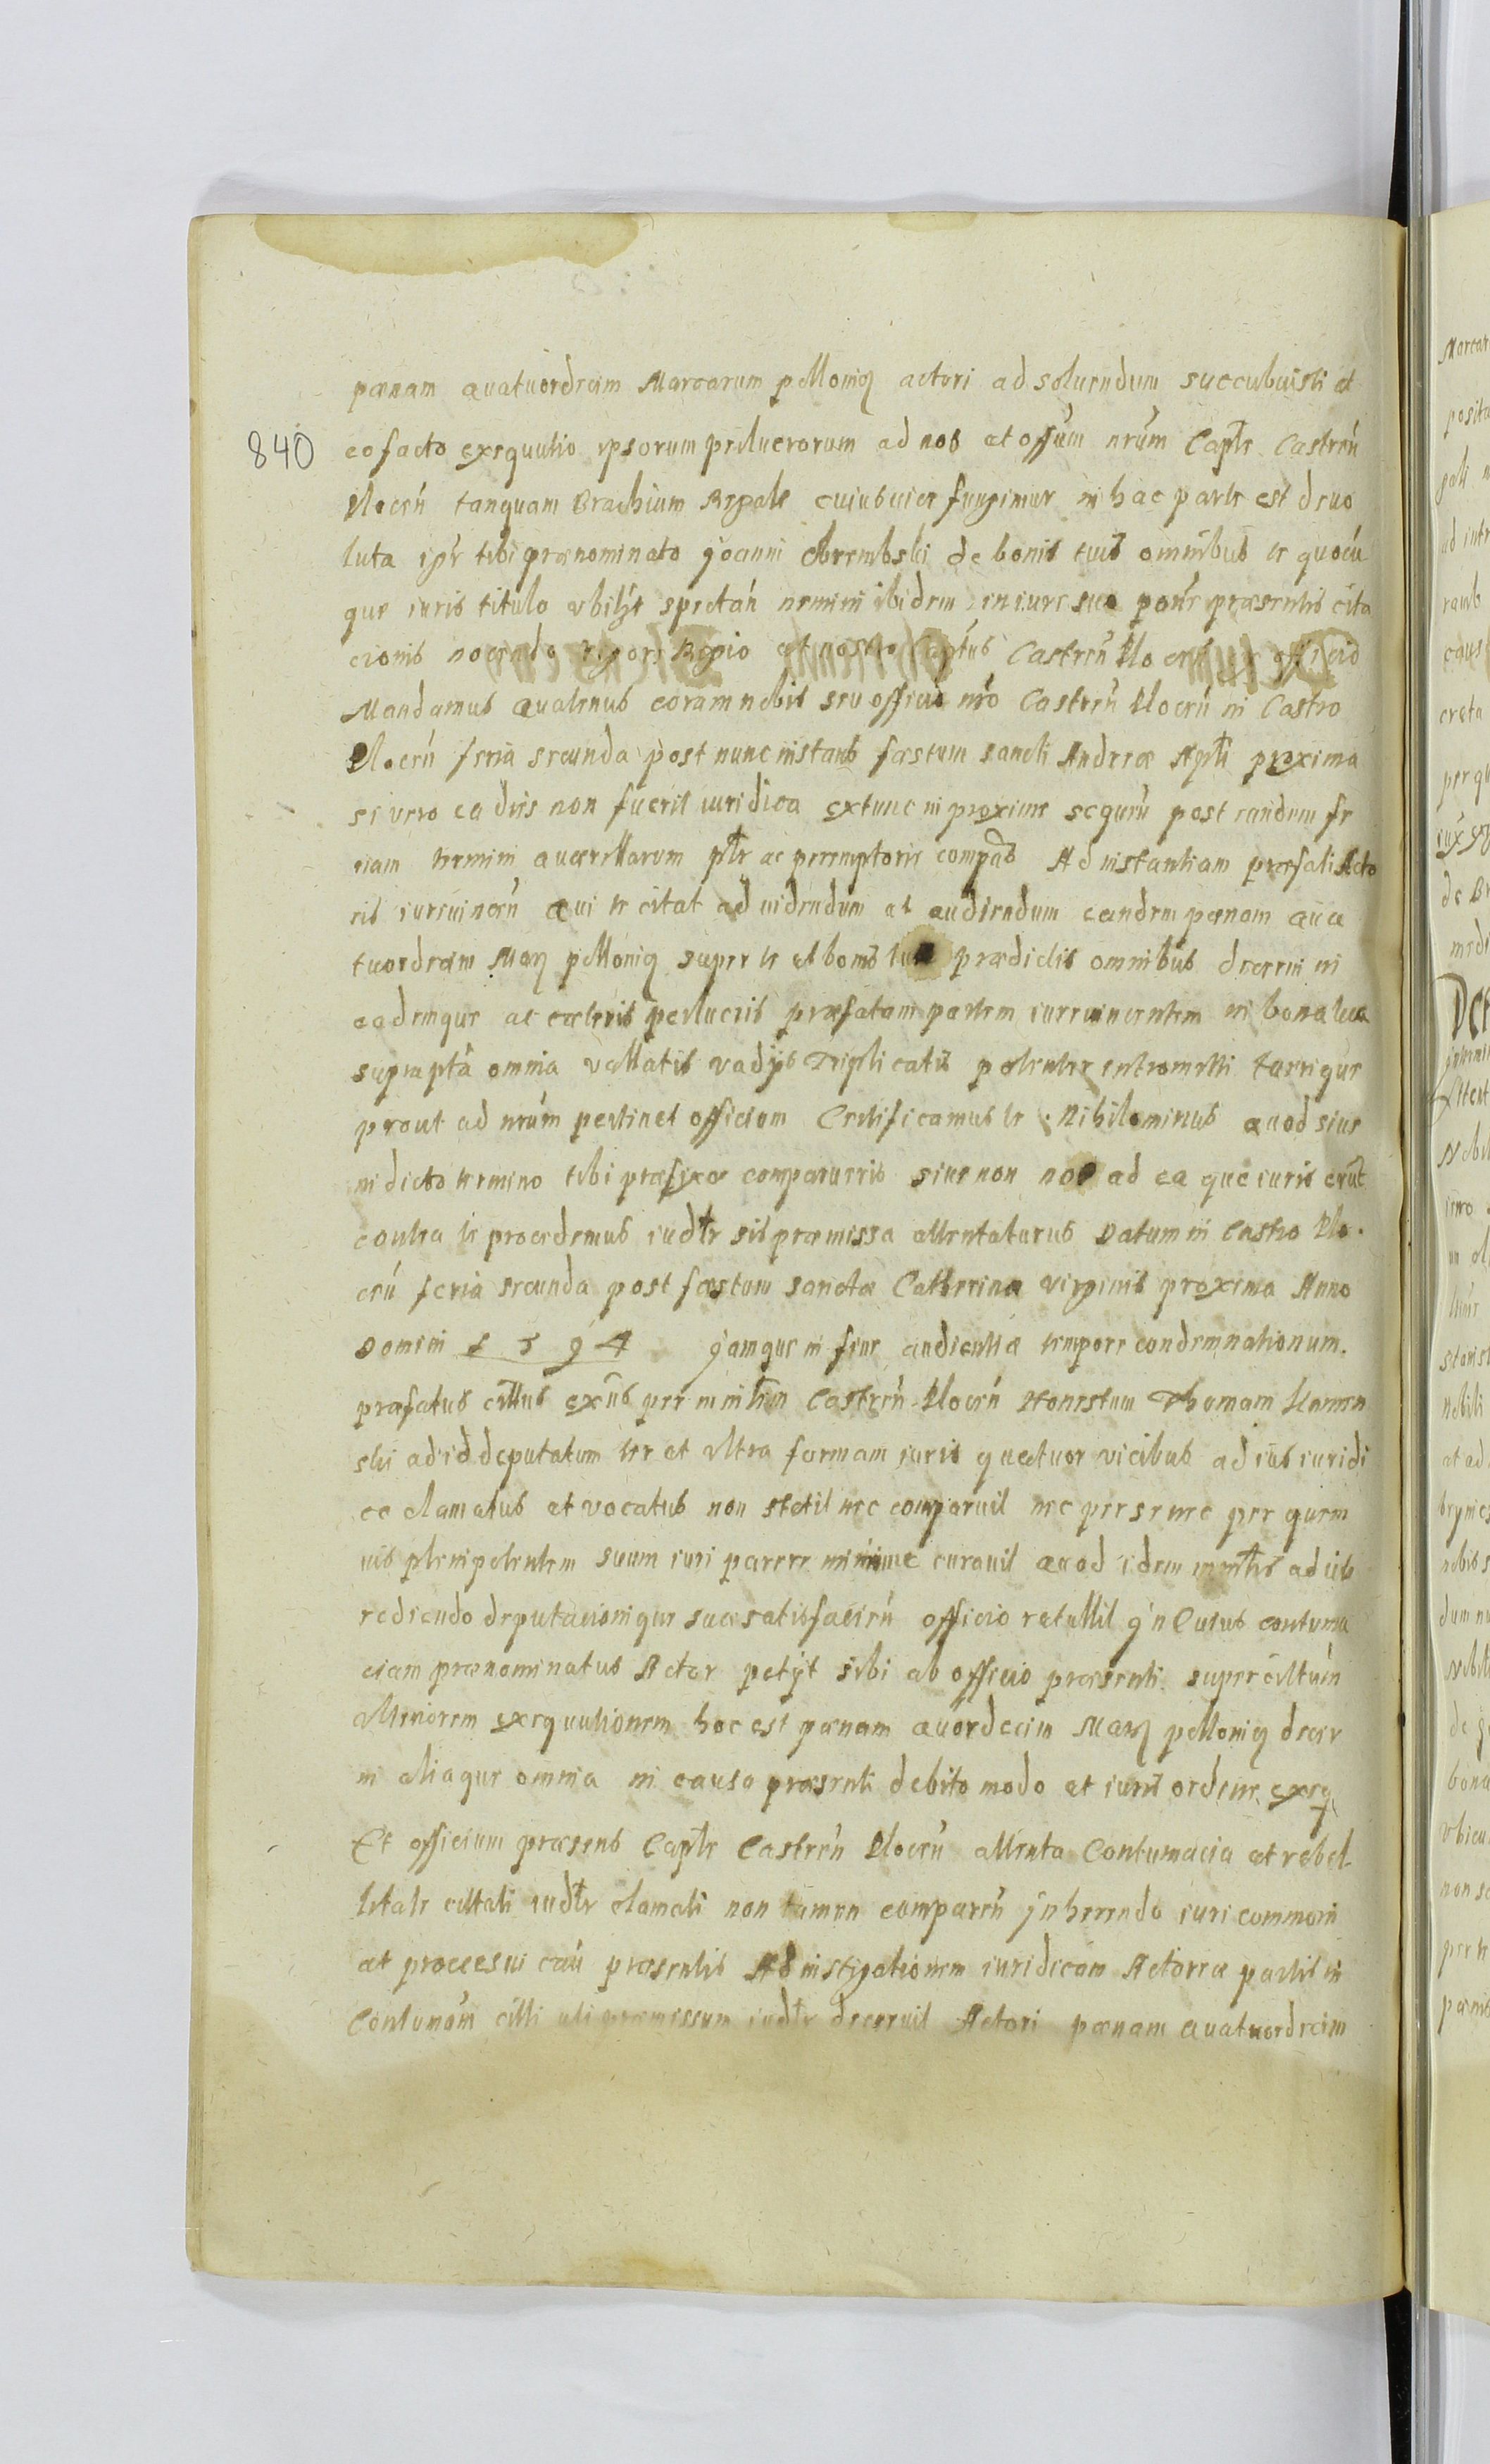 pœnam quatuordecim Marcarum pellonicą actori ad soluendum succubuisti et
840
eo facto exequutio ipsorum perlucrorum ad nos et offūm nrūm Captle Castreń
Ploceń tanquam Brachium Regale cuius vice fungimur in hac parte est deuo
luta ipr tibi prænominato Joanni de bonis tuis omnibus te quocū
que iuris titulo vbilȝt spectań nemini ibidem in iure suo ponr præsentis cita
cionis nocendo rigore Regio et nostro Captus Castreń Ploceń ex officio
Mandamus quatenus coram nobis seu officio nrō Castreń Ploceń in Castro
Ploceń feria secunda post nunc instans fæstum sancti Andreæ Aptli proxima
si vero ea dies non fuerit iuridica extunc in proxime sequeń post eandem fe
riam termini quærellarum ptle ac peremptorie compās Ad instantiam præfati Acto
ris iureuinceń qui te citat ad uidendum et audiendum eandem pœnam qua
tuordecim Marą pellonicą super te et bonis tuis prædictis omnibus decerni in
eademque ac cæteris perlucris præfatam partem iureuincentem in bona tua
suprapta omnia vallatis vadijs triplicatis potenter intromitti tuerique
prout ad nrūm pertinet officium Certificamus te Nihilominus quod siue
in dicto termino tibi præfixo comparueris siue non nos ad ea que iuris erūt
contra te procedemus iudtle sis præmissa attentaturus Datum in Castro Plo
ceń feria secunda post fæstum sanctæ Catherinæ virginis proxima Anno
Domini 1594 Jamque in fine audientiæ tempore condemnationum
præfatus cittus exīis per ministrm Castreń Ploceń Honestum Thomam
ski ad id deputatum ter et vltra formam iuris quatuor vicibus ad ius iuridi
ce clamatus et vocatus non stetit nec comparuit nec per se nec per quem
uis plenipotentem suum iuri parere minime curauit quod idem mintris ad iis
rediendo deputacionique suæ satisfacień officio retullit Jn Cuius contuma
ciam prænominatus Actor petijt sibi ab officio præsenti super cittūm
vlteriorem exequutionem hoc est pœnam quordecim Marą pellonicą decer
ni aliaque omnia in causa præsenti debito modo et iuris ordine exeq
Et officium præsens Captle Castreń Ploceń attenta Contumacia et rebel
litate cittati iudtle clamati non tamen compareń Jnherendo iuri communi
et processui cau præsentis Ad instigationem iuridicam Actoreæ partis in
Contumām citti uti præmissum iudtle decreuit Actori pœnam quatuordecim